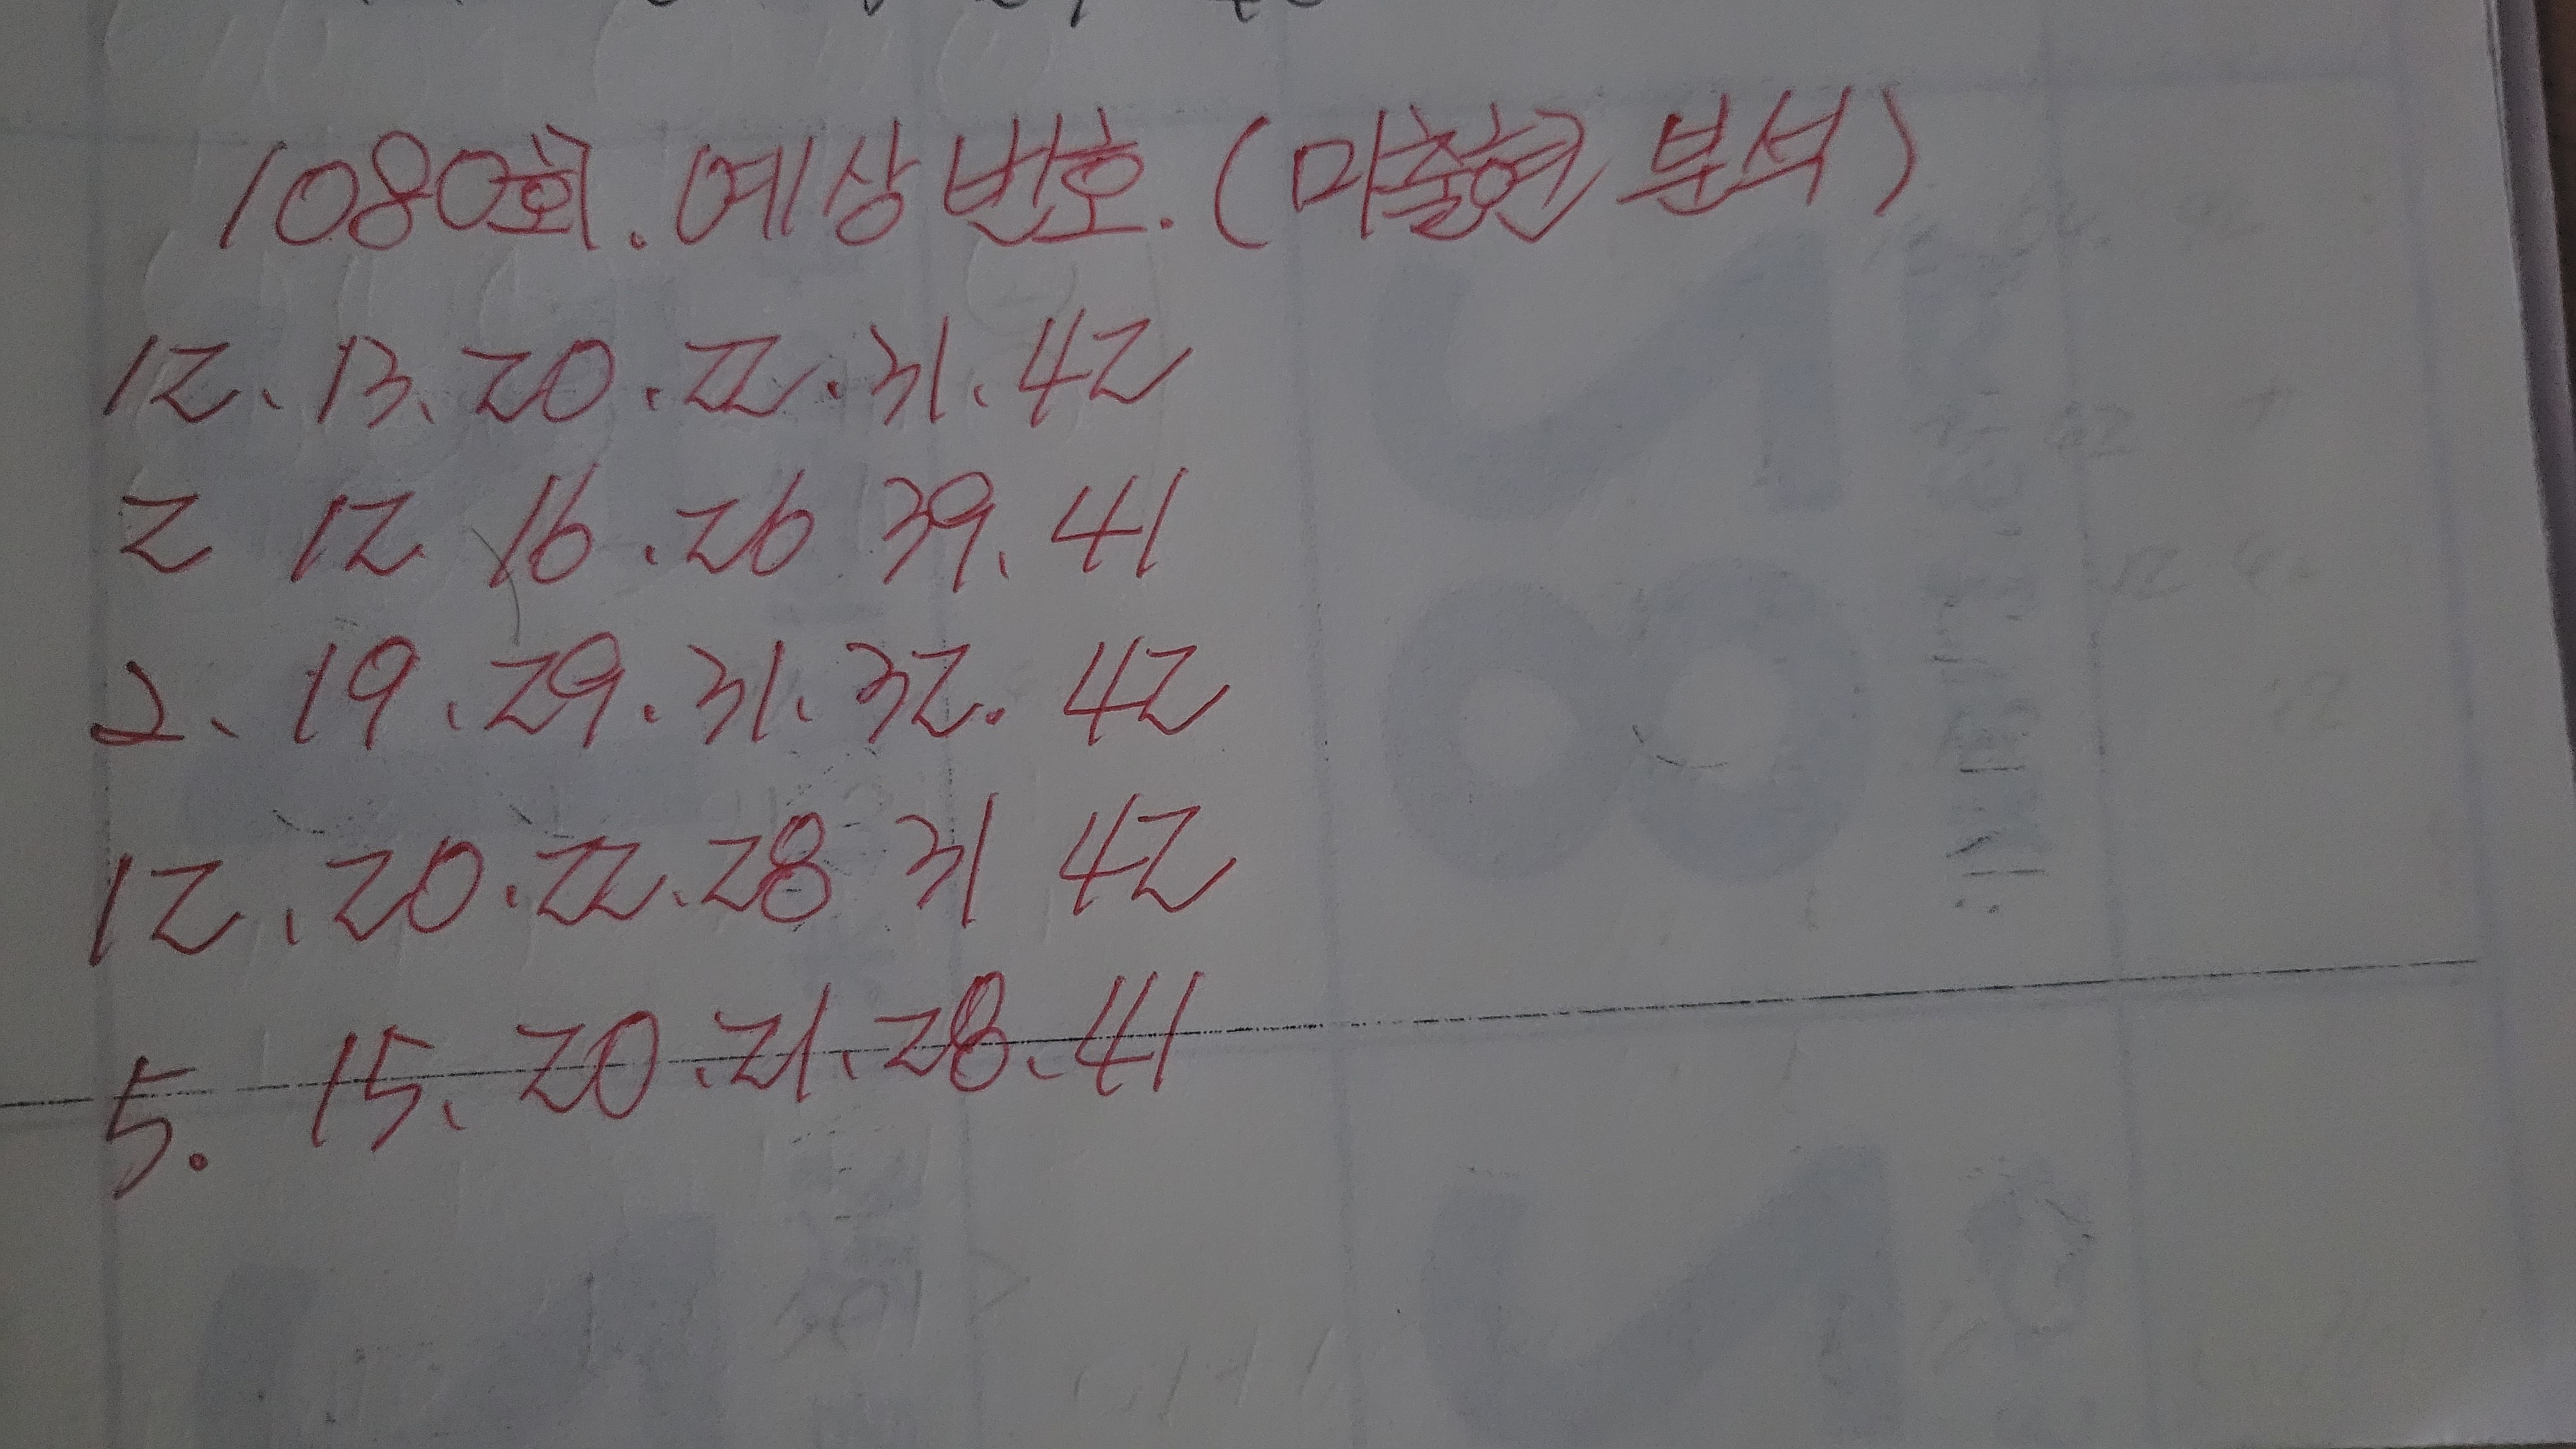 1080회. 예상번호. (미출현 분석)
12. 13. 20. 22. 31. 42
2 12 16. 26 39. 41
2. 19. 29. 31. 32. 42
12. 20. 22. 28 31 42
5. 15. 20. 21. 28. 41